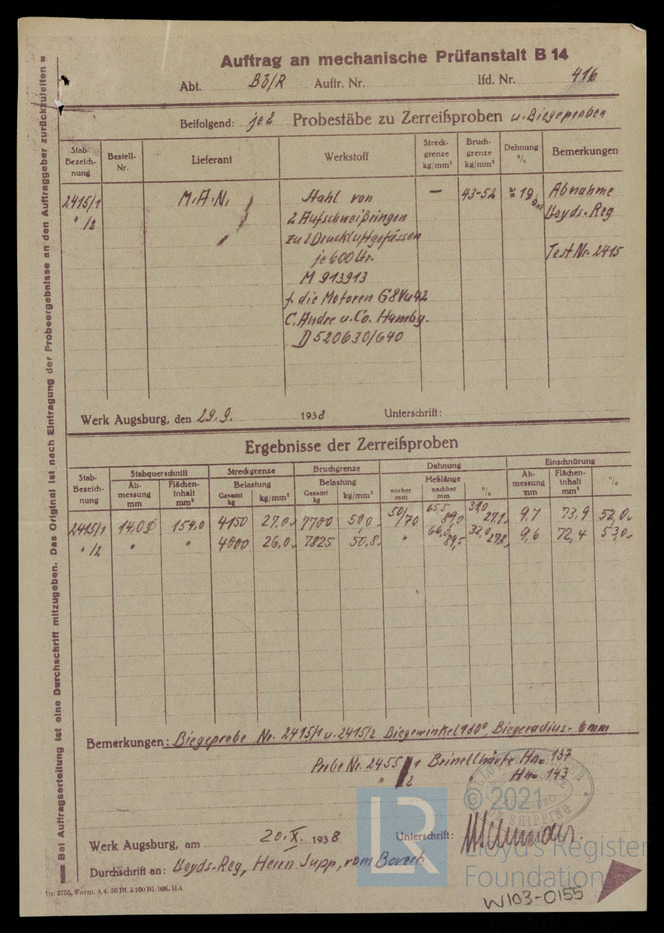 Auftrag an mechanische Prüfanstalt B 14
Abt. B3/R Auftr. Nr. lfd. Nr. 416
Beifolgend: je 2 Probestäbe zu Zerreißproben u. Biegeproben
Stab-Bezeichnung Bestell-Nr. Lieferant Werkstoff Streckgrenze kg/mm² Bruchgrenze kg/mm² Dehnung % Bemerkungen
2415/1 M.A.N. Stahl von — 43-52 ≥ 19 Abnahme
" /2 2 Aufschweißringen Lloyds-Reg
zu 2 Druckluftgefässen Test Nr. 2415
je 600 Ltr.
M 913913
f. die Motoren G8Vu42
C. Andre u. Co. Hambg.
D 520630/640
Werk Augsburg, den 29.9. 1938 Unterschrift:
Ergebnisse der Zerreißproben
Stab-Bezeichnung Stabquerschnitt Streckgrenze Bruchgrenze Dehnung Einschnürung
Abmessung mm Flächeninhalt mm² Belastung Gesamt kg kg/mm² Belastung Gesamt kg kg/mm² Meßlänge vorher mm nachher mm % Abmessung mm Flächeninhalt mm² %
2415/1 14,0 ⌀ 154,0 4150 27,0 7700 50,0 50/70 65,5 89,0 31,0 27,1 9,7 73,9 52,0
" /2 " " 4000 26,0 7825 50,8 " 66,0 89,5 32,0 27,8 9,6 72,4 53,0
Bemerkungen: Biegeprobe Nr. 2415/1 u. 2415/2 Biegewinkel 180° Biegeradius - 6mm
Probe Nr. 2455/1 Brinellhärte Hn= 137
" /2 " Hn= 143
Werk Augsburg, am 20. X. 1938 Unterschrift:
Durchschrift an: Lloyds-Reg, Herrn Jupp,
Bei Auftragserteilung ist eine Durchschrift mitzugeben. Das Original ist nach Eintragung der Probeergebnisse an den Auftraggeber zurückzuleiten
© 2021
Lloyd's Register
Foundation
LR
W103-0155